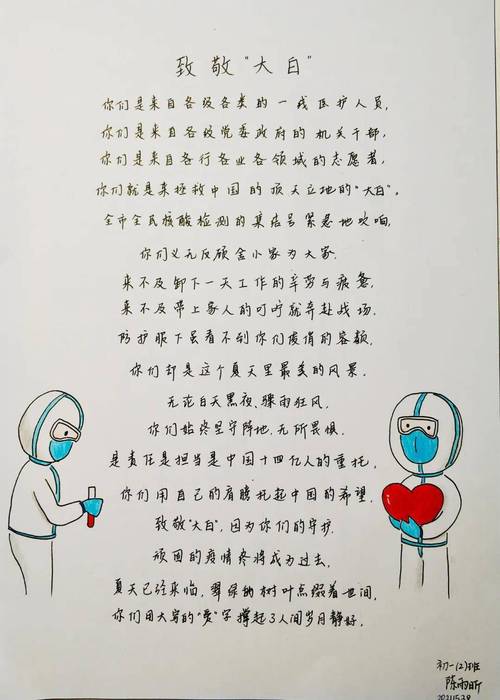 致敬“大白”
你们是来自各级各类的一线医护人员,
你们是来自各级党委政府的机关干部,
你们是来自各行各业各领域的志愿者,
你们就是来拯救中国的顶天立地的“大白”。
全市全民核酸检测的集结号紧急地吹响,
你们义无反顾舍小家为大家.
来不及卸下一天工作的辛劳与疲惫,
来不及带上家人的叮咛就奔赴战场.
防护服下虽看不到你们疲倦的容颜,
你们却是这个夏天里最美的风景.
无论白天黑夜、骤雨狂风,
你们始终坚守阵地,无所畏惧.
是责任是担当是中国十四亿人的重托,
你们用自己的肩膀托起中国的希望.
致敬“大白”,因为你们的守护.
顽固的疫情终将成为过去,
夏天已经来临,翠绿的树叶点缀着世间,
你们用大写的“爱”字撑起了人间岁月静好.
初一(2)班
陈雨昕